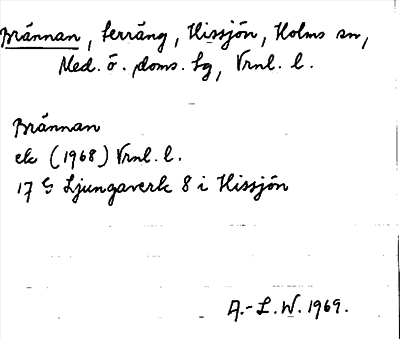 Brännan, terräng, Hissjön, Holms sn,
Med. ö. doms. tg, Vrnl. l.
Brännan
ek (1968) Vrnl. l.
17 G Ljungaverk 8 i Hissjön
A.-L. W. 1969.